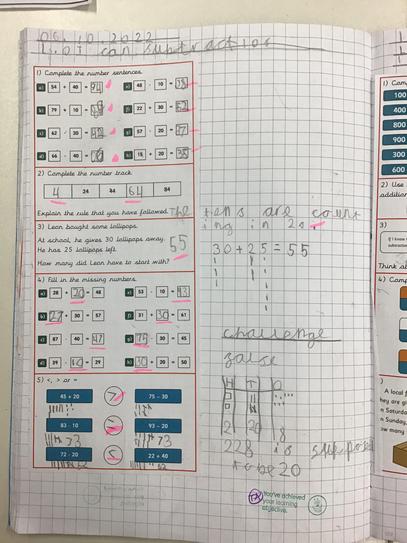 06.10.2022
L.O.I can subtract 10s
1) Complete the number sentences.
54 + 40 = 94
48 - 10 = 38
79 + 10 =
22 + 30 = 52
62 - 30 =
57 - 20 = 37
66 - 40 =
15 + 20 = 35
2) Complete the number track.
4 24 44 64 84
Explain the rule that you have followed. The
tens are count
ing in 20s.
3) Leon bought some lollipops.
At school, he gives 30 lollipops away.
He has 25 lollipops left.
How many did Leon have to start with?
55
30 + 25 = 55
4) Fill in the missing numbers.
28 + 20 = 48
53 - 10 = 43
+ 30 = 57
31 + 30 = 61
87 - 40 = 47
- 30 = 45
39 - 10 = 29
+ 20 = 50
5) <, > or =
45 + 20 > 75 - 30
83 - 10 93 - 20
73 73
72 - 20 < 22 + 40
challenge
false
H T O
2 20 8
228 is supposed
to be 20
You've achieved
your learning
objective.
1) Com
100
400
800
900
300
600
2) Use
addition
3)
I know
Think of
4) Comp
A local f
they are gi
on Saturda
n Sunday,
ow many